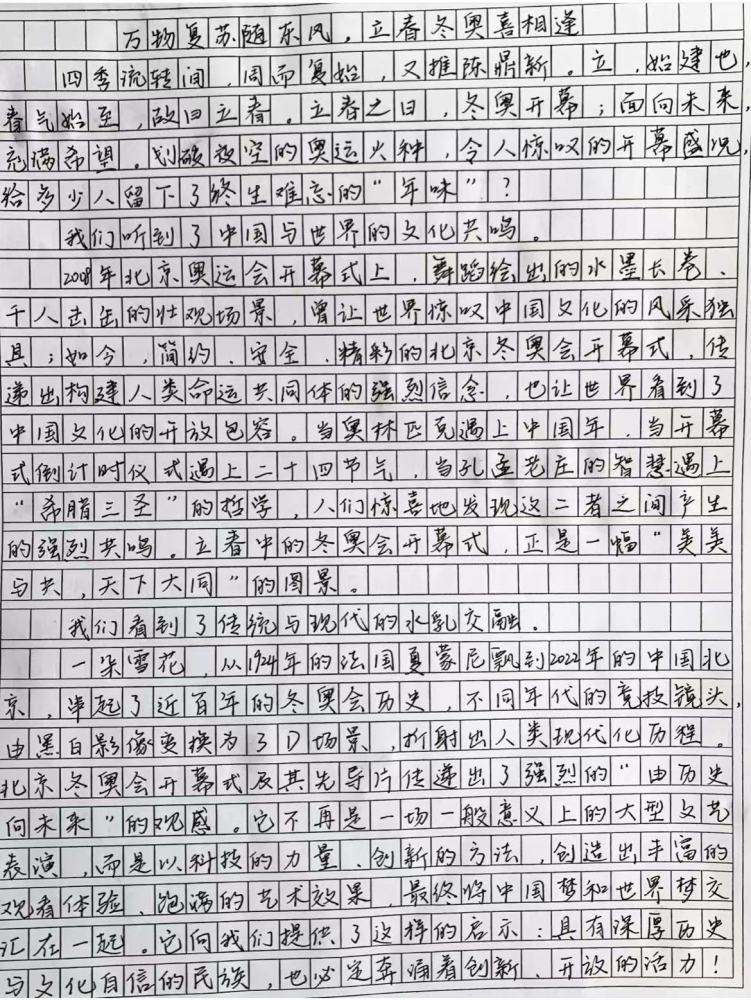 万物复苏随东风，立春冬奥喜相逢
四季流转间，周而复始，又推陈鼎新。立，始建也，
春气始至，故曰立春。立春之日，冬奥开幕；面向未来，
充满希望。划破夜空的奥运火种，令人惊叹的开幕盛况，
给多少人留下了终生难忘的“年味”？
我们听到了中国与世界的文化共鸣。
2008年北京奥运会开幕式上，舞蹈绘出的水墨长卷、
千人击缶的壮观场景，曾让世界惊叹中国文化的风采独
具；如今，简约、安全、精彩的北京冬奥会开幕式，传
递出构建人类命运共同体的强烈信念，也让世界看到了
中国文化的开放包容。当奥林匹克遇上中国年，当开幕
式倒计时仪式遇上二十四节气，当孔孟老庄的智慧遇上
“希腊三圣”的哲学，人们惊喜地发现这二者之间产生
的强烈共鸣。立春中的冬奥会开幕式，正是一幅“美美
与共，天下大同”的图景。
我们看到了传统与现代的水乳交融。
一朵雪花，从1924年的法国夏蒙尼飘到2022年的中国北
京，串起了近百年的冬奥会历史，不同年代的竞技镜头，
由黑白影像变换为了D场景，折射出人类现代化历程。
北京冬奥会开幕式及其先导片传递出了强烈的“由历史
向未来”的观感。它不再是一场一般意义上的大型文艺
表演，而是以科技的力量、创新的方法，创造出丰富的
观看体验、饱满的艺术效果，最终将中国梦和世界梦交
汇在一起。它向我们提供了这样的启示：具有深厚历史
与文化自信的民族，也必定奔涌着创新、开放的活力！